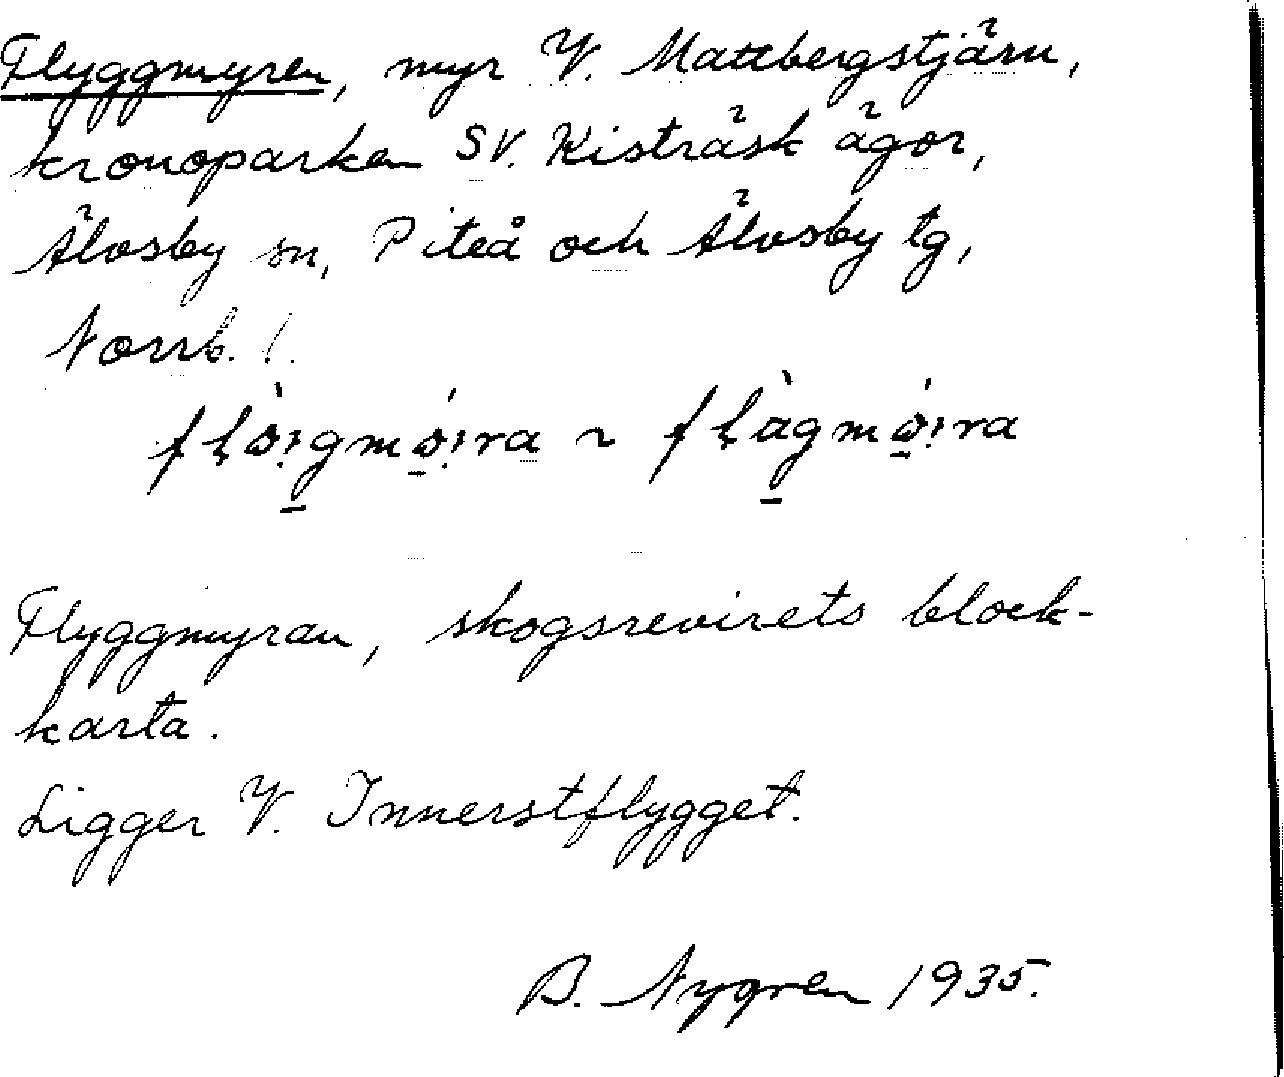 Flyggmyren, myr V. Mattbergstjärn,
kronoparken SV. Kisträsk ägor,
Älvsby sn, Piteå och Älvsby tg,
Norrb. l.
flɷ̀i̯gmǿi̯ra ~ flàgmǿi̯ra
Flyggmyran, skogsrevirets block-
karta.
Ligger V. Innerstflygget.
B. Nygren 1935.